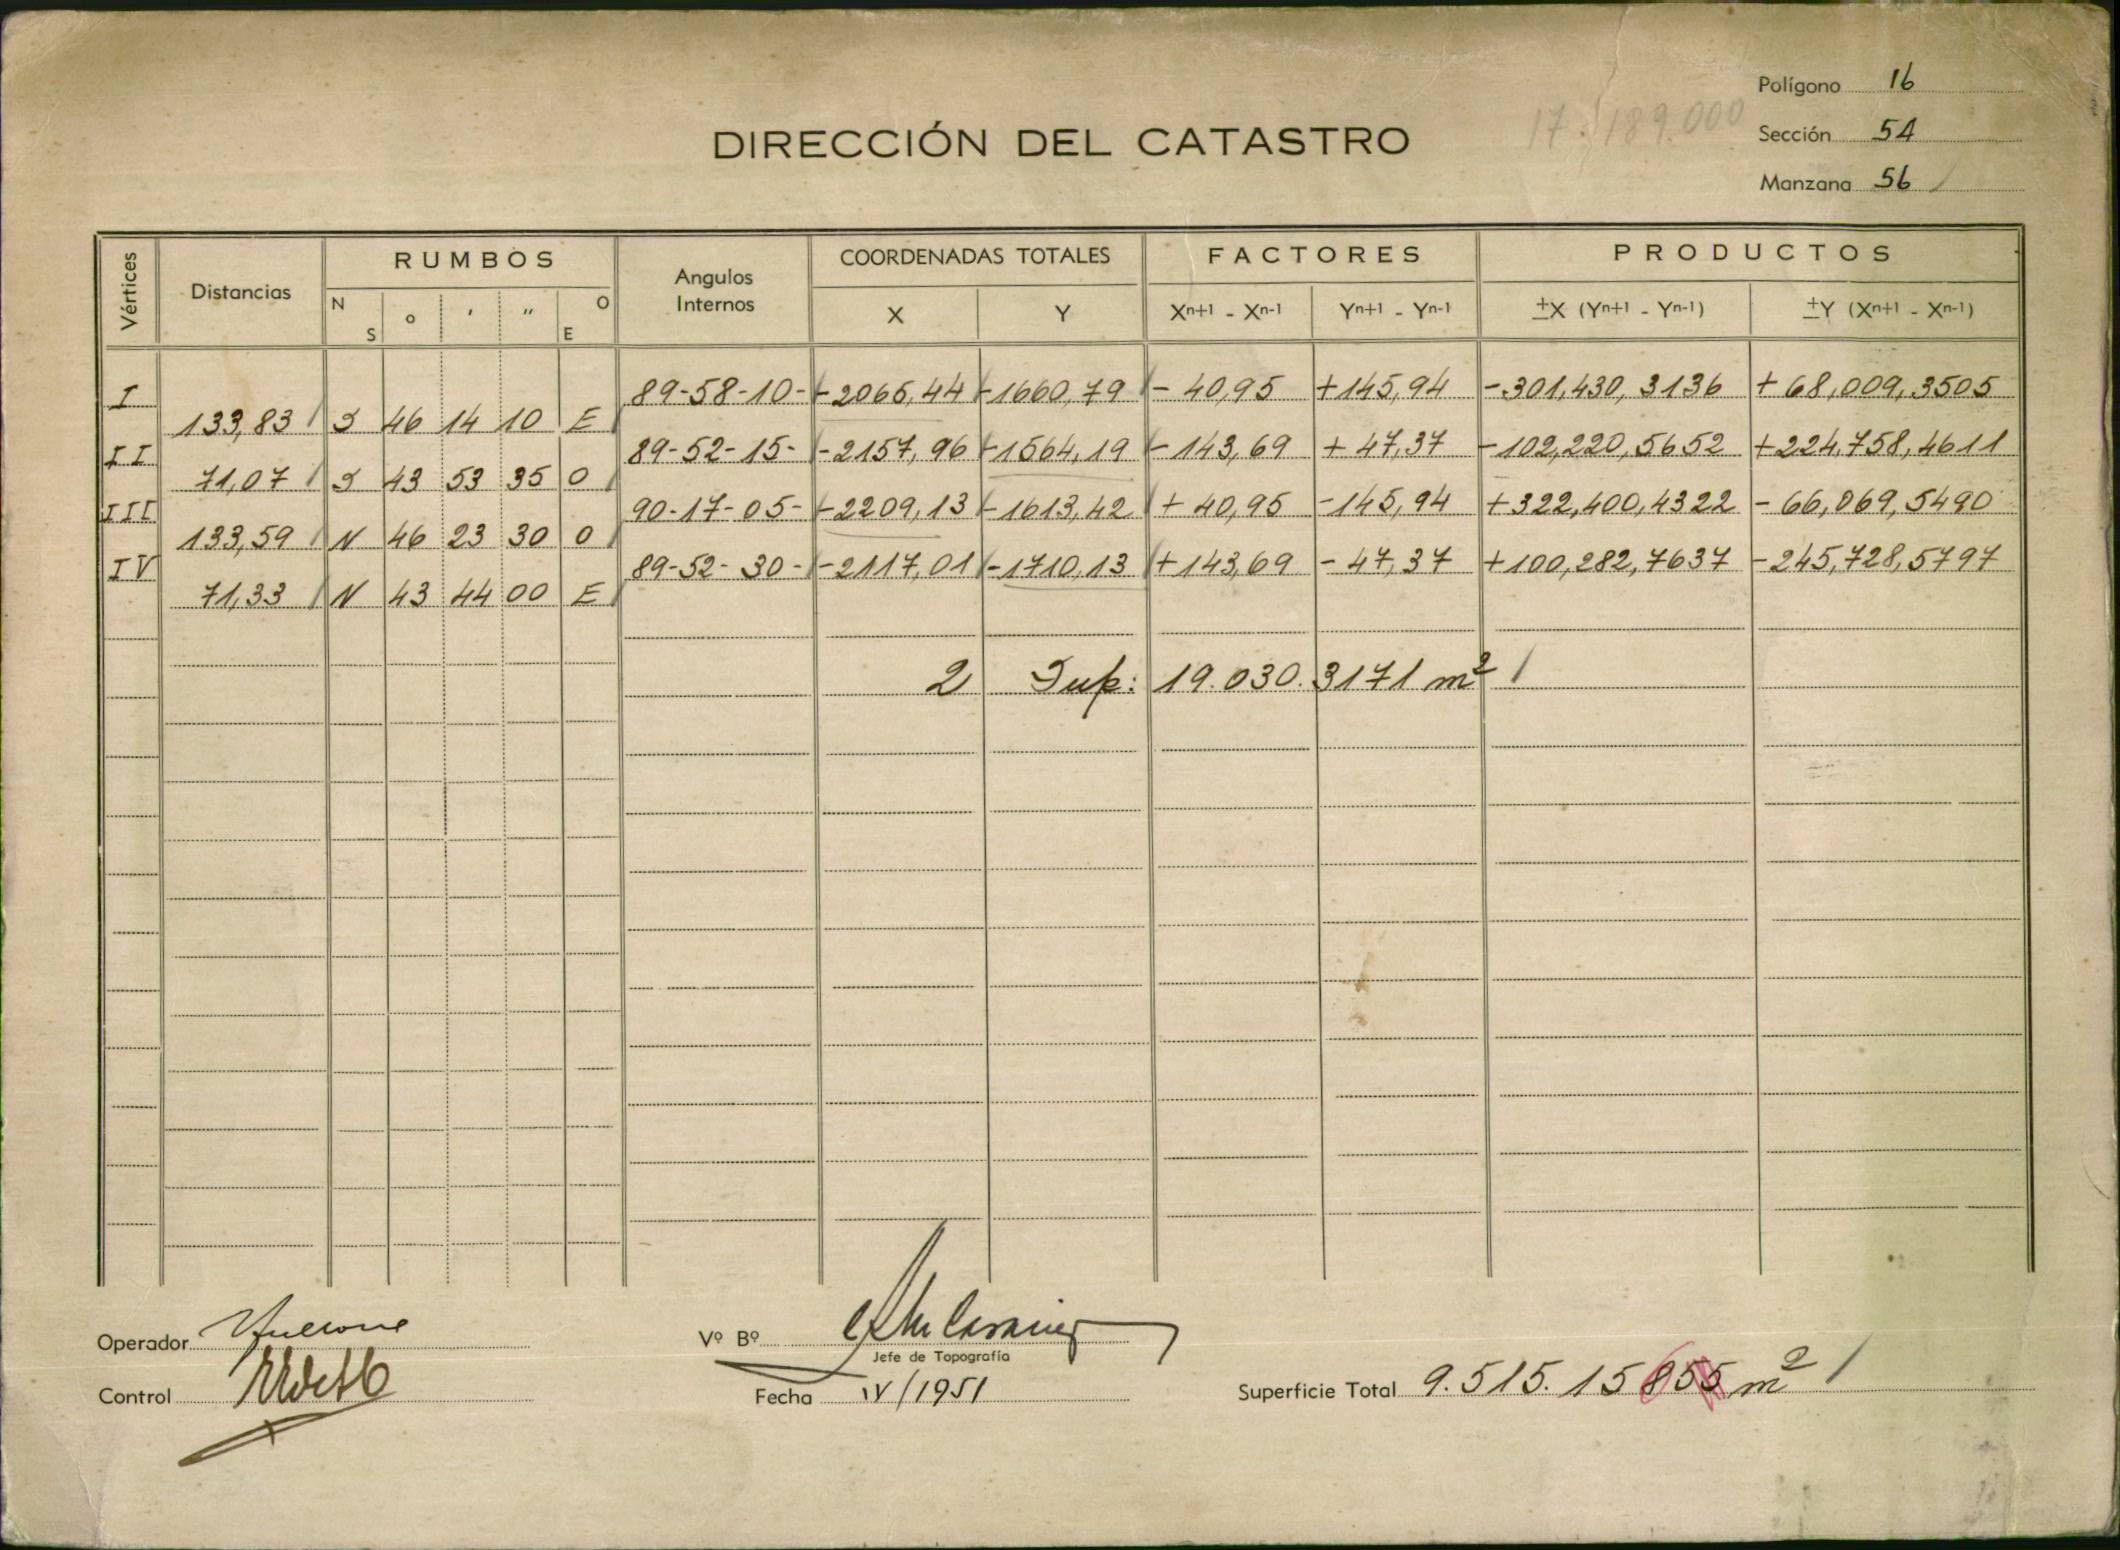 Polígono 16
17.189.000
DIRECCIÓN DEL CATASTRO
Sección 54
Manzana 56
Vértices Distancias RUMBOS Angulos Internos COORDENADAS TOTALES FACTORES PRODUCTOS
N S ° ' " O E X Y Xn+1 - Xn-1 Yn+1 - Yn-1 ±X (Yn+1 - Yn-1) ±Y (Xn+1 - Xn-1)
I 89-58-10- -2065,44 -1660,79 - 40,95 +145,94 -301,430,3136 + 68,009,3505
133,83 S 46 14 10 E
II 89-52-15- -2157,96 -1564,19 - 143,69 + 47,37 -102,220,5652 +224,758,4611
71,07 S 43 53 35 O
III 90-17-05- -2209,13 -1613,42 + 40,95 -145,94 +322,400,4322 - 66,069,5490
133,59 N 46 23 30 O
IV 89-52-30- -2117,01 -1710,13 +143,69 - 47,37 +100,282,7637 -245,728,5797
71,33 N 43 44 00 E
2 Sup: 19.030.3171 m²
Operador
Vº Bº
Jefe de Topografía
Control
Fecha IV/1951
Superficie Total 9.515.15855 m²